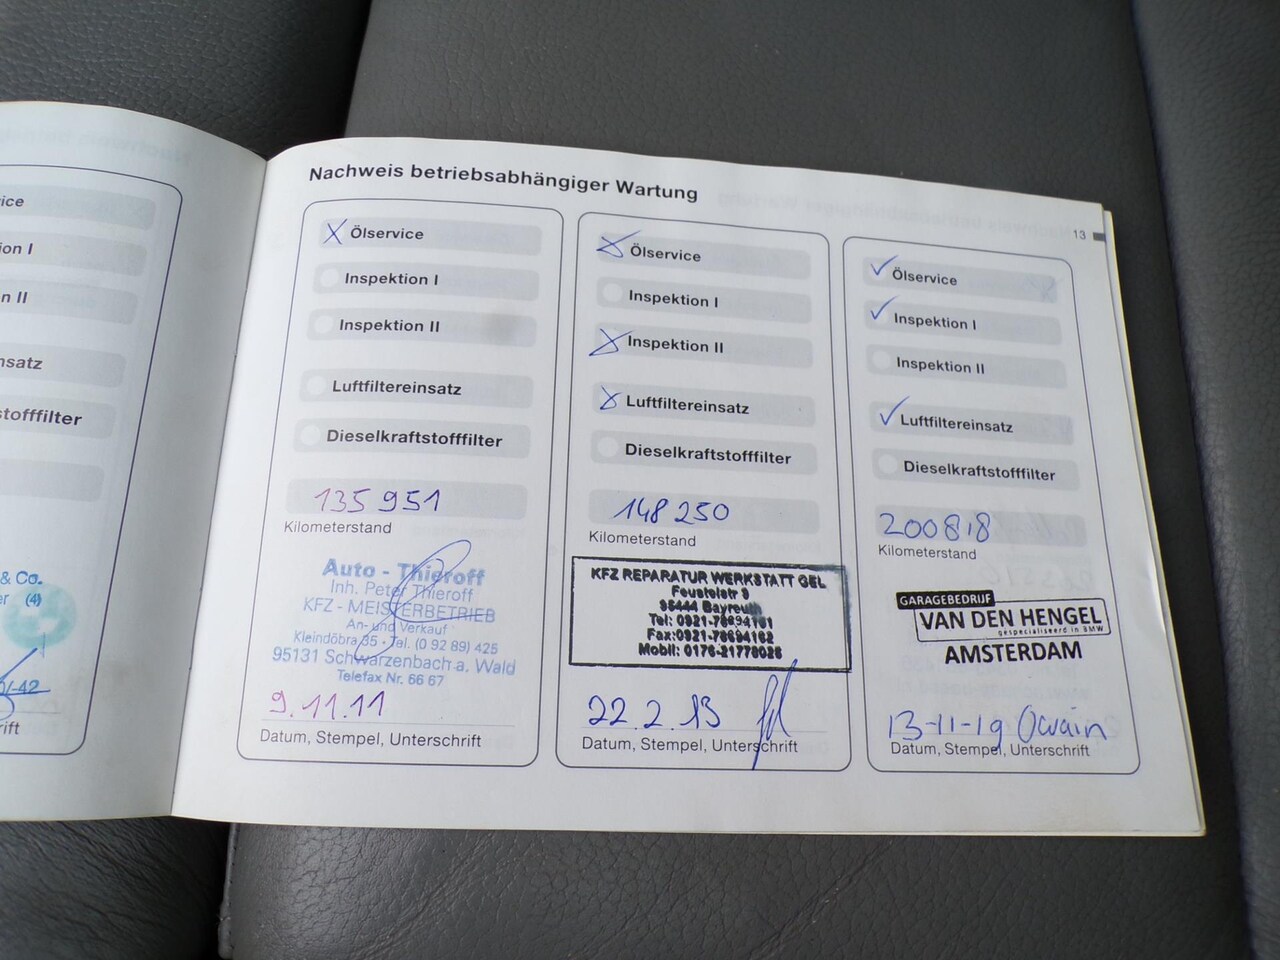 ice
ion I
n II
nsatz
stofffilter
& Co.
er (4)
rift
Nachweis betriebsabhängiger Wartung
13
X Ölservice
Inspektion I
Inspektion II
Luftfiltereinsatz
Dieselkraftstofffilter
135 951
Kilometerstand
Auto - Thieroff
Inh. Peter Thieroff
KFZ - MEISTERBETRIEB
An- und Verkauf
Kleindöbra 35 · Tel. (0 92 89) 425
95131 Schwarzenbach a. Wald
Telefax Nr. 66 67
9.11.11
Datum, Stempel, Unterschrift
X Ölservice
Inspektion I
X Inspektion II
X Luftfiltereinsatz
Dieselkraftstofffilter
148 250
Kilometerstand
KFZ REPARATUR WERKSTATT GEL
95444 Bayreuth
Tel: 0921-78694161
Fax:0921-78694162
Mobil: 0176-21778026
22.2.13
Datum, Stempel, Unterschrift
✓ Ölservice
✓ Inspektion I
Inspektion II
✓ Luftfiltereinsatz
Dieselkraftstofffilter
200818
Kilometerstand
GARAGEBEDRIJF
VAN DEN HENGEL
gespecialiseerd in BMW
AMSTERDAM
13-11-19
Datum, Stempel, Unterschrift